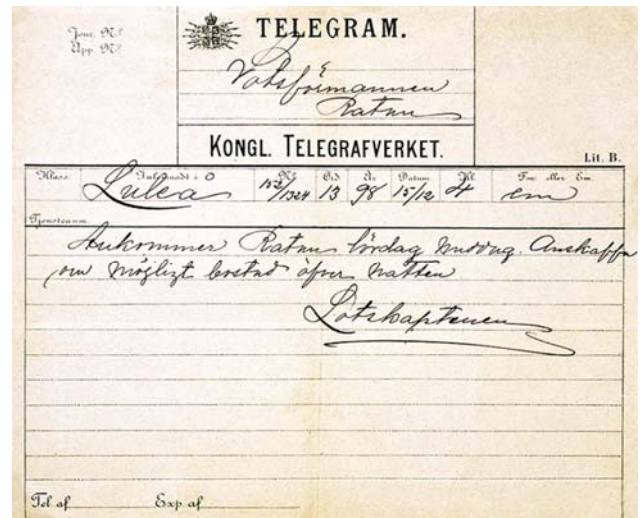 Jour. Nº
App. Nº
TELEGRAM.
Lotsförmannen
Ratan
KONGL. TELEGRAFVERKET.
Lit. B.
Klass. Inlemnadt i Nº Ord År Datum Kl. Fm. eller Em.
Luleå 152/1324 13 98 15/12 4 em
Tjensteanm.
Ankommer Ratan lördag middag. Anskaffa
om möjligt bostad öfver natten
Lotskaptenen
Tel. af Exp. af